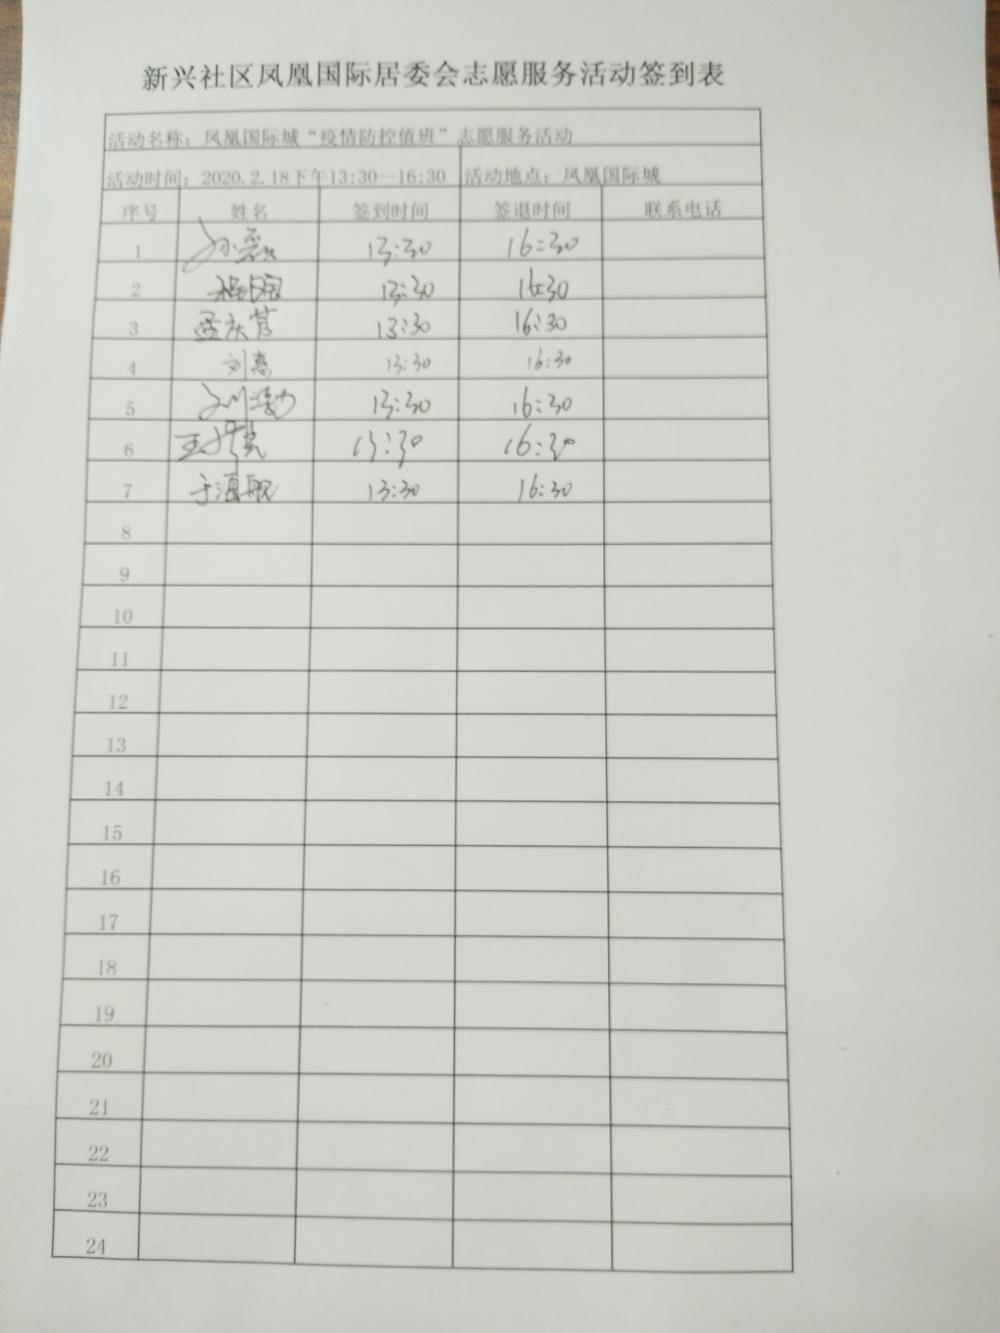 新兴社区凤凰国际居委会志愿服务活动签到表
活动名称：凤凰国际城“疫情防控值班”志愿服务活动
活动时间：2020.2.18下午13:30—16:30 活动地点：凤凰国际城
序号 姓名 签到时间 签退时间 联系电话
1 13:30 16:30
2 13:30 16:30
3 孟庆营 13:30 16:30
4 刘惠 13:30 16:30
5 刘渤 13:30 16:30
6 13:30 16:30
7 于海舰 13:30 16:30
8
9
10
11
12
13
14
15
16
17
18
19
20
21
22
23
24